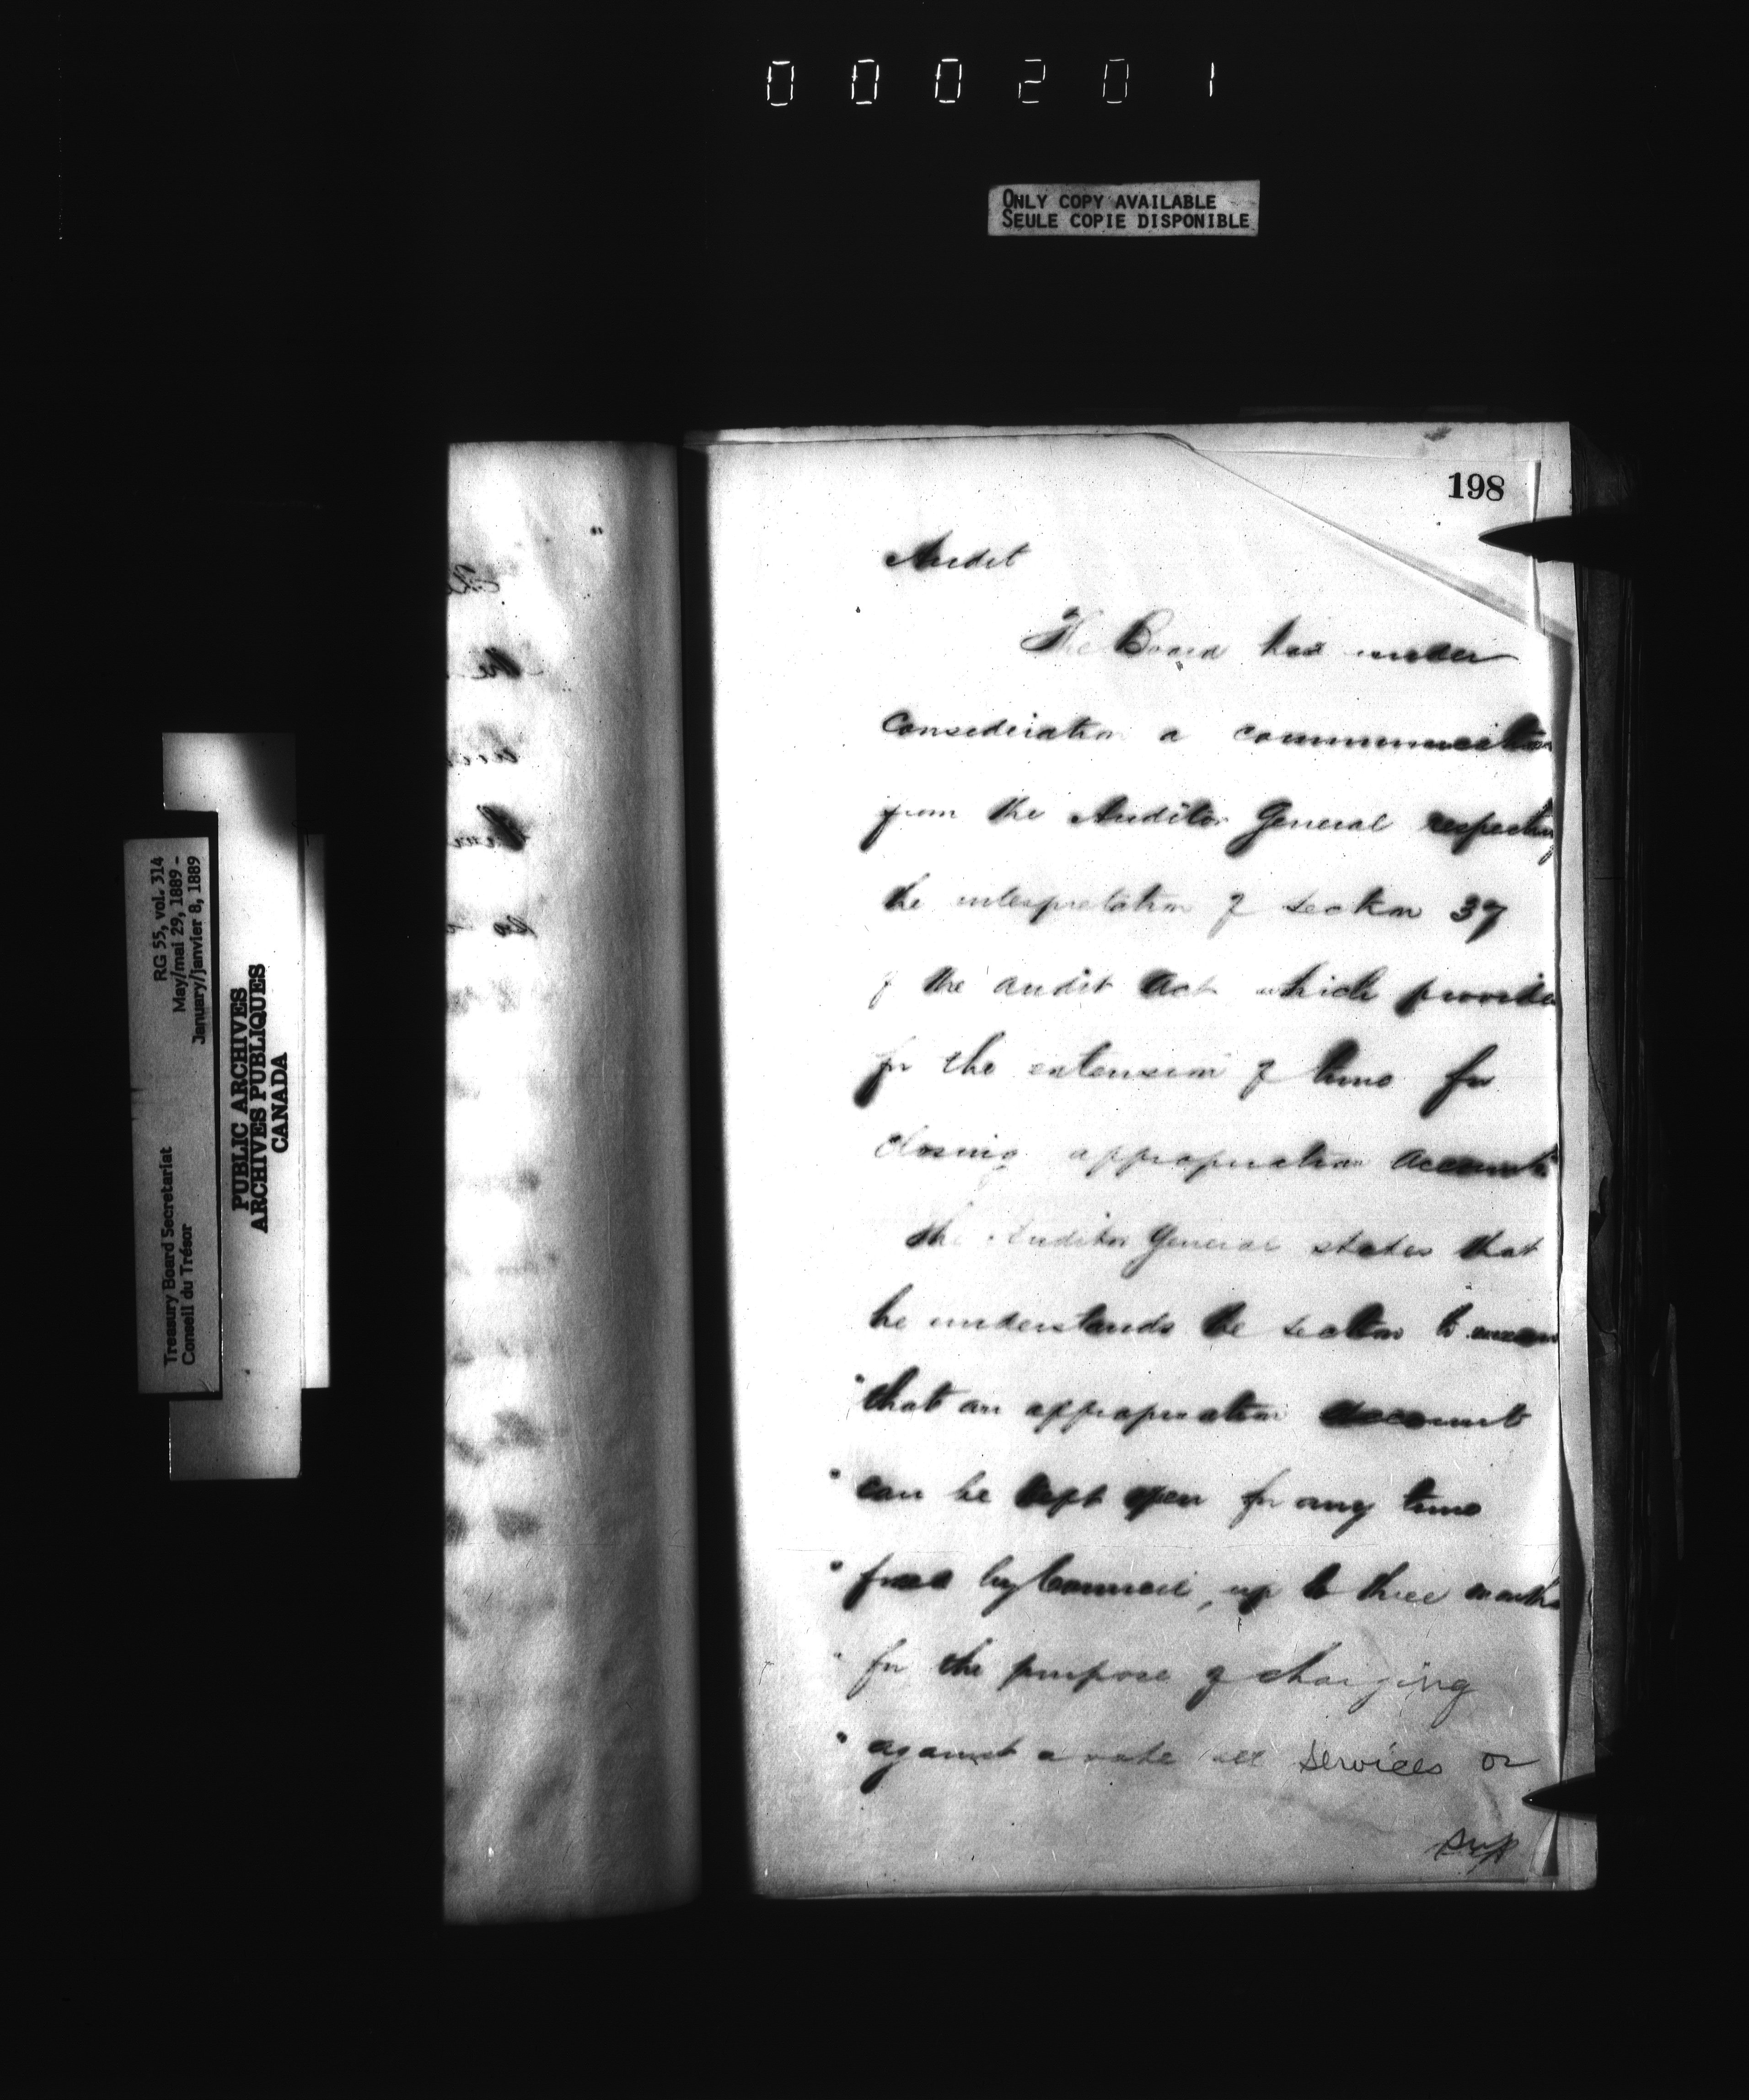 000201
ONLY COPY AVAILABLE
SEULE COPIE DISPONIBLE
RG 55, vol. 314
May/mai 29, 1889 -
January/janvier 8, 1889
Treasury Board Secretariat
Conseil du Trésor
PUBLIC ARCHIVES
ARCHIVES PUBLIQUES
CANADA
198
Audit
The Board has under
consideration a communication
from the Auditor General respecting
the interpretation of section 37
of the audit Act which provides
for the extension of time for
closing appropriation accounts
The Auditor General states that
he understands the section to mean
" that an appropriation account
" can be kept open for any time
" fixed by Council, up to three months
" for the purpose of charging
" against a vote all services or
sup